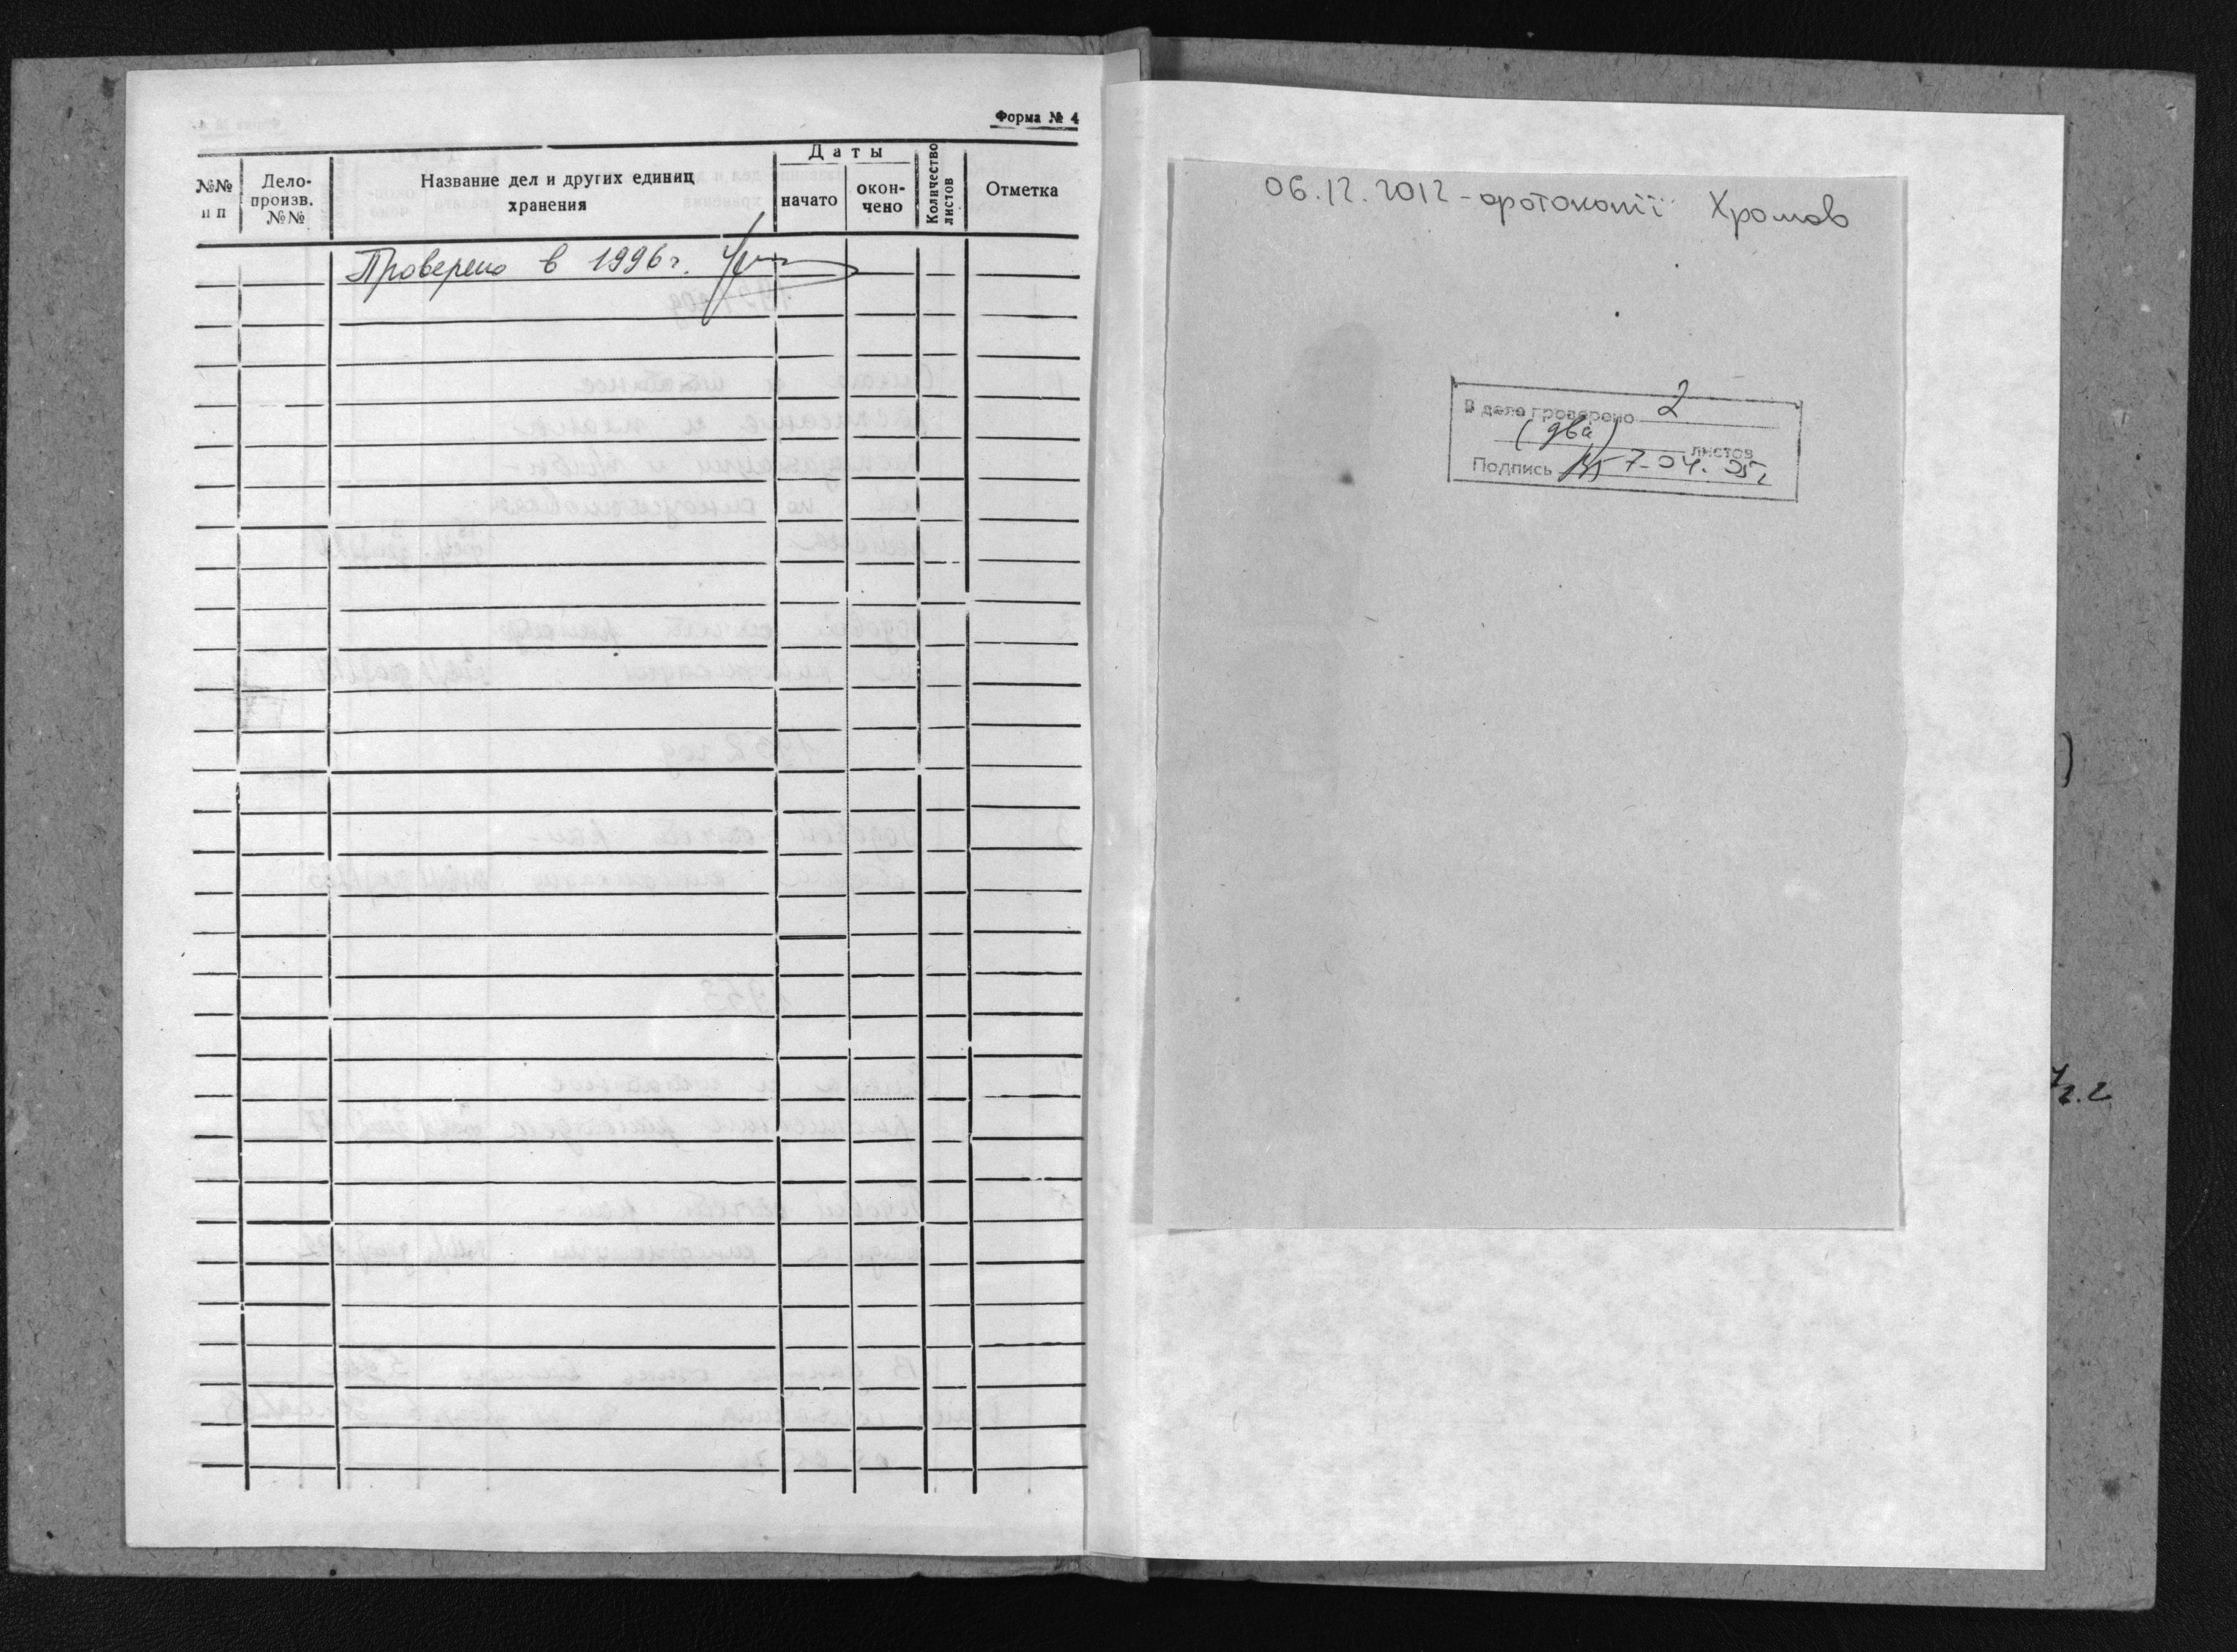 Форма № 4
№№ п п
Дело-
произв.
№№
Название дел и других единиц
хранения
Даты
начато
окон-
чено
Количество
листов
Отметка
Проверено в 1996 г.
06.12.2012 - фотокопії Хромов
В деле проверено 2
(два) листов
Подпись 7-04.05г